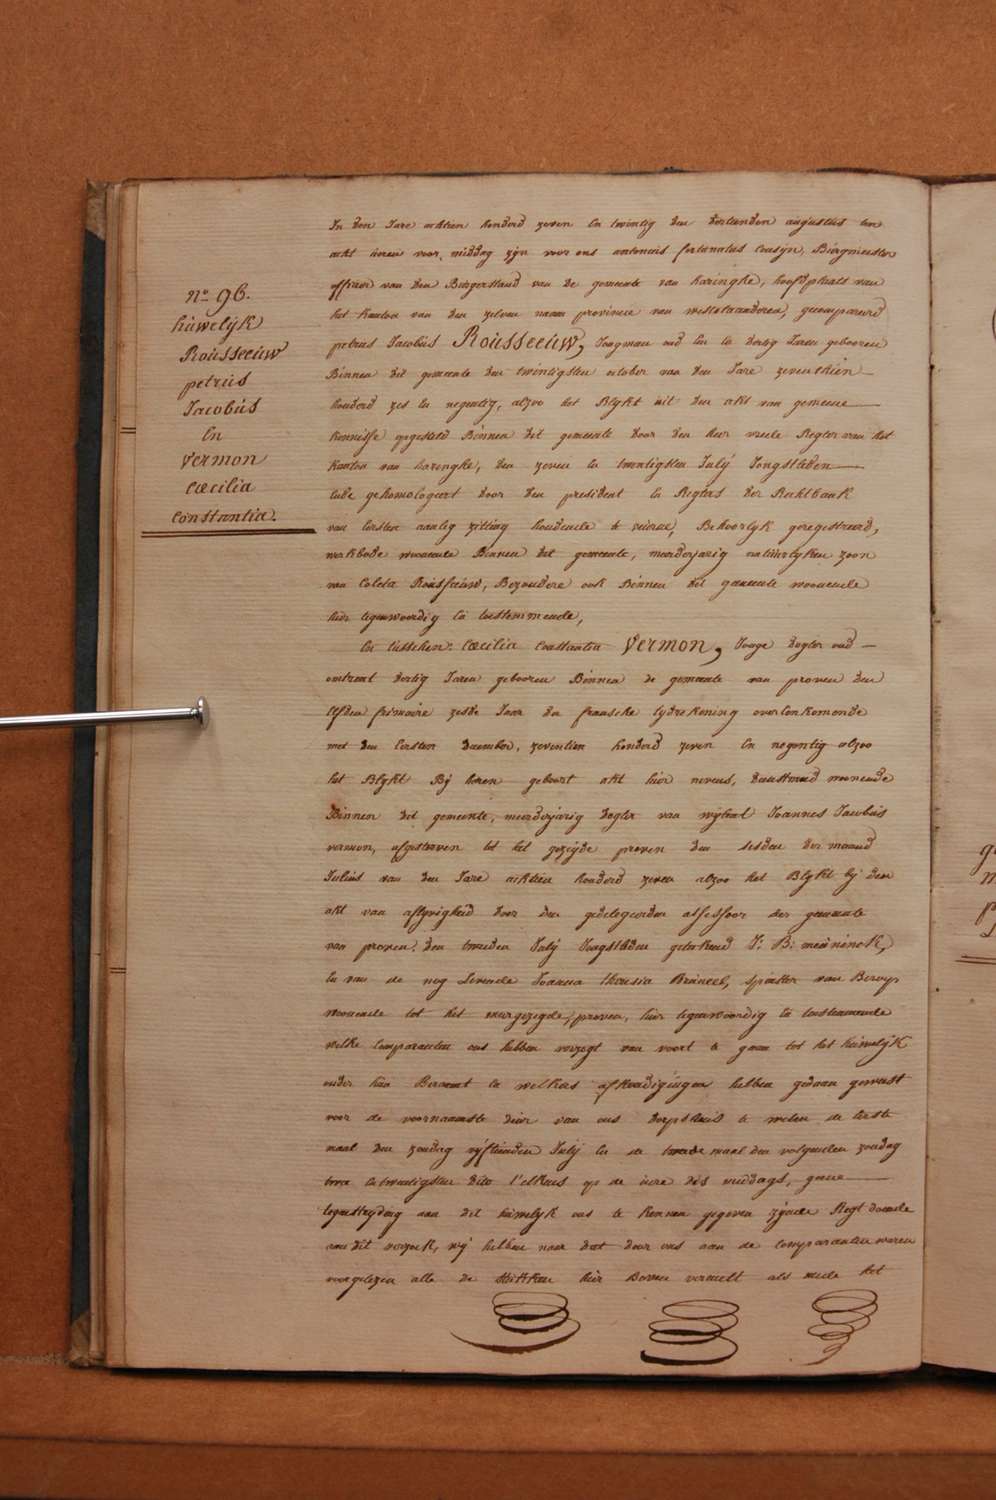 No 96.
huwelijk
Rousseeuw
petrus
Jacobus
En
Vermon
Cœcilia
Constantia.
In den Jare achtien honderd zeven En twintig den dertienden augustus ten
acht uren voor middag zijn voor ons antonius fortunatus Cousijn, Burgmeester
officier van den Burgerstand van de gemeente van haringhe, hoofdplaats van
het kanton van den zelven naam provincie van westvlaanderen, gecompareerd
petrus Jacobus Rousseeuw, Jongman oud Een En dertig Jaren gebooren
Binnen dit gemeente den twintigsten october van den Jare zeventhien
honderd zes En negentig, alzoo het Blijkt uit den akt van gemeene
kennisse opgesteld Binnen dit gemeente door den heer vrede Regter van het
kanton van haringhe, den zeven En twentigsten Julij Jongstleden
Ende gehomologeert door den president En Regters der Rechtbank
van Eersten aanleg zitting houdende te veurne, Behoorlijk geregistreerd,
werkbode woonende Binnen dit gemeente, meerderjarig natuurlyken zoon
van Coleta Rousseeuw, Bezondere ook Binnen dit gemeente woonende
hier tegenwoordig En toestemmende,
En tusschen Cœcilia Constantia Vermon, Jonge dogter oud
omtrent dertig Jaren gebooren Binnen de gemeente van proven den
Elfden frimaire zesde Jaar der fransche tydrekening overEenkomende
met den Eersten december, zeventien honderd zeven En negentig alzoo
het Blijkt Bij haren geboort akt hier nevens, dienstmeid woonende
Binnen dit gemeente, meerderjarig dogter van wijlent Joannes Jacobus
vermon, afgestorven tot het gezeijde proven den sesden der maand
Julius van den Jare achtien honderd zeven alzoo het Blijkt bij den
akt van aflyvigheid door den gedelegeerden assessor der gemeente
van proven den tweeden Julij Jongstleden geteekend J: B: meuninck,
En van de nog Levende Joanna theresia Bruneel, spinster van Beroep
woonende tot het meergezegde, proven, hier tegenwoordig En toestemmende
welke Comparanten ons hebben verzogt van voort te gaan tot het huwelijk
onder hun Beraemt En welkers afkondigingen hebben gedaan geweest
voor de voornaamste deur van ons dorpshuis te weten de Eerste
maal den zondag vijftienden Julij En de tweede maal den volgenden zondag
twee En twentigsten dito t'elkens op de uere des middags, geene
tegenstrydig aan dit huwelijk ons te kennen gegeven zijnde Regt doende
aan dit verzoek, wij hebben naar dat door ons aan de Comparanten waren
voorgelezen alle de stukken hier Boven vermelt als mede het